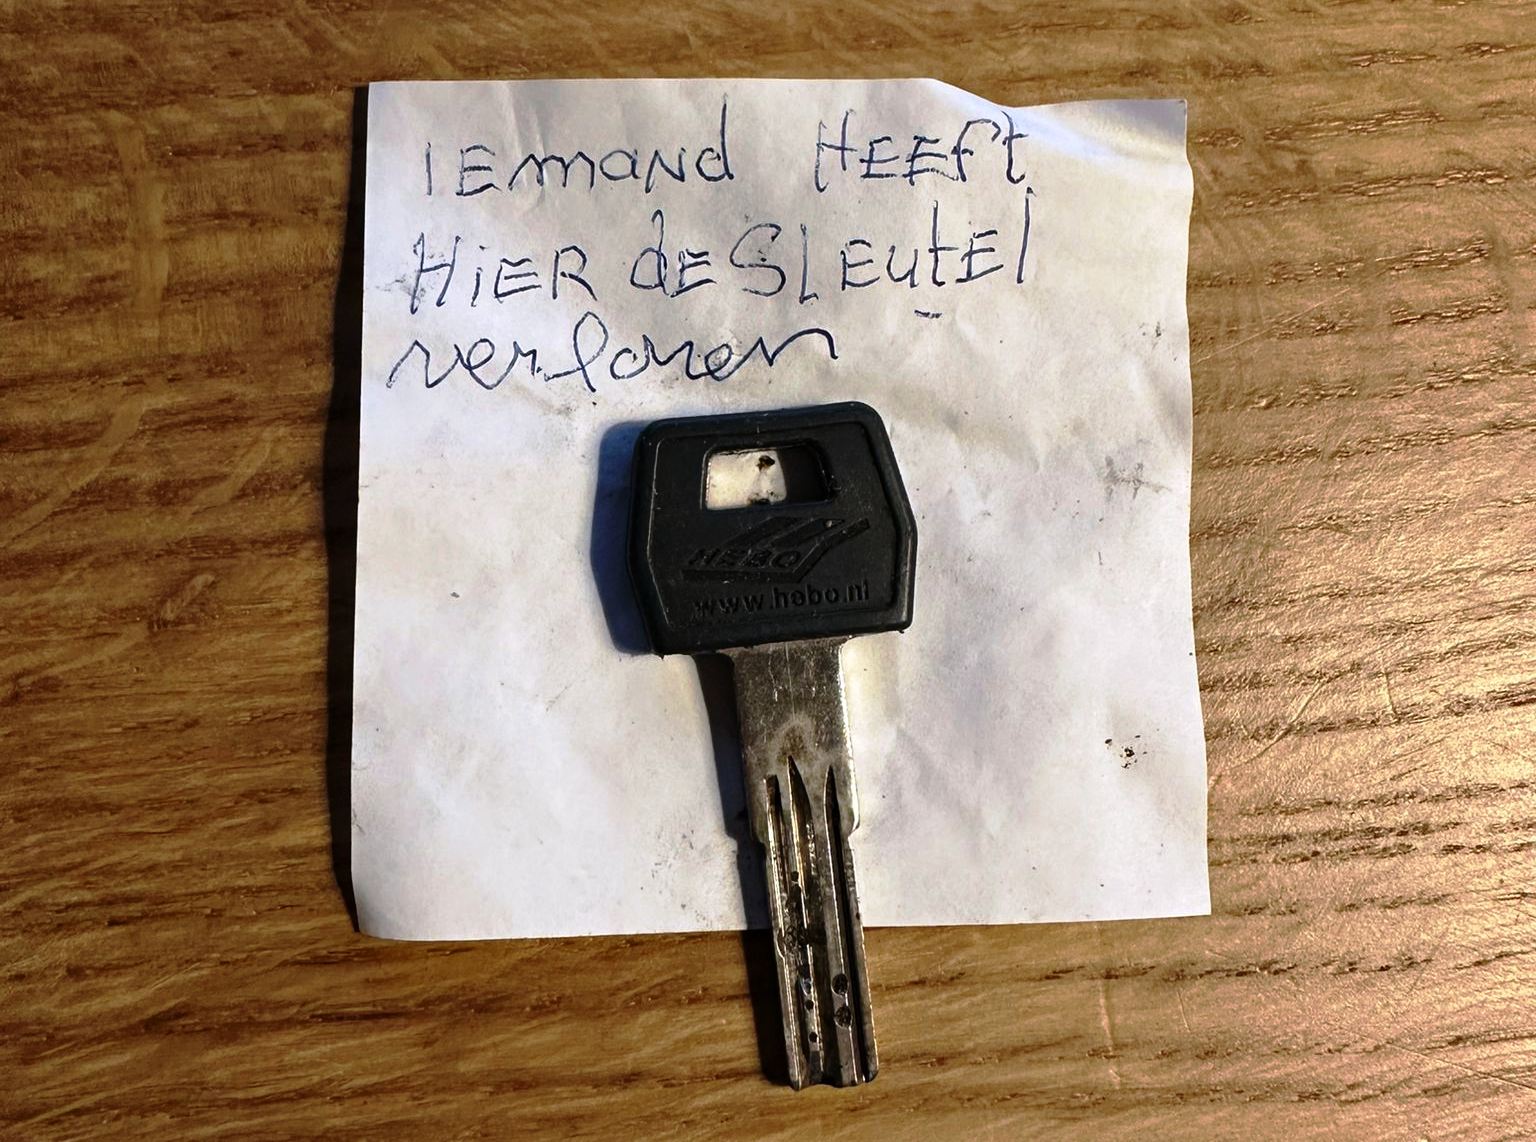 IEmaNd HEEft
HiER dE SlEutEl
verloren
HEBO
www.hebo.nl